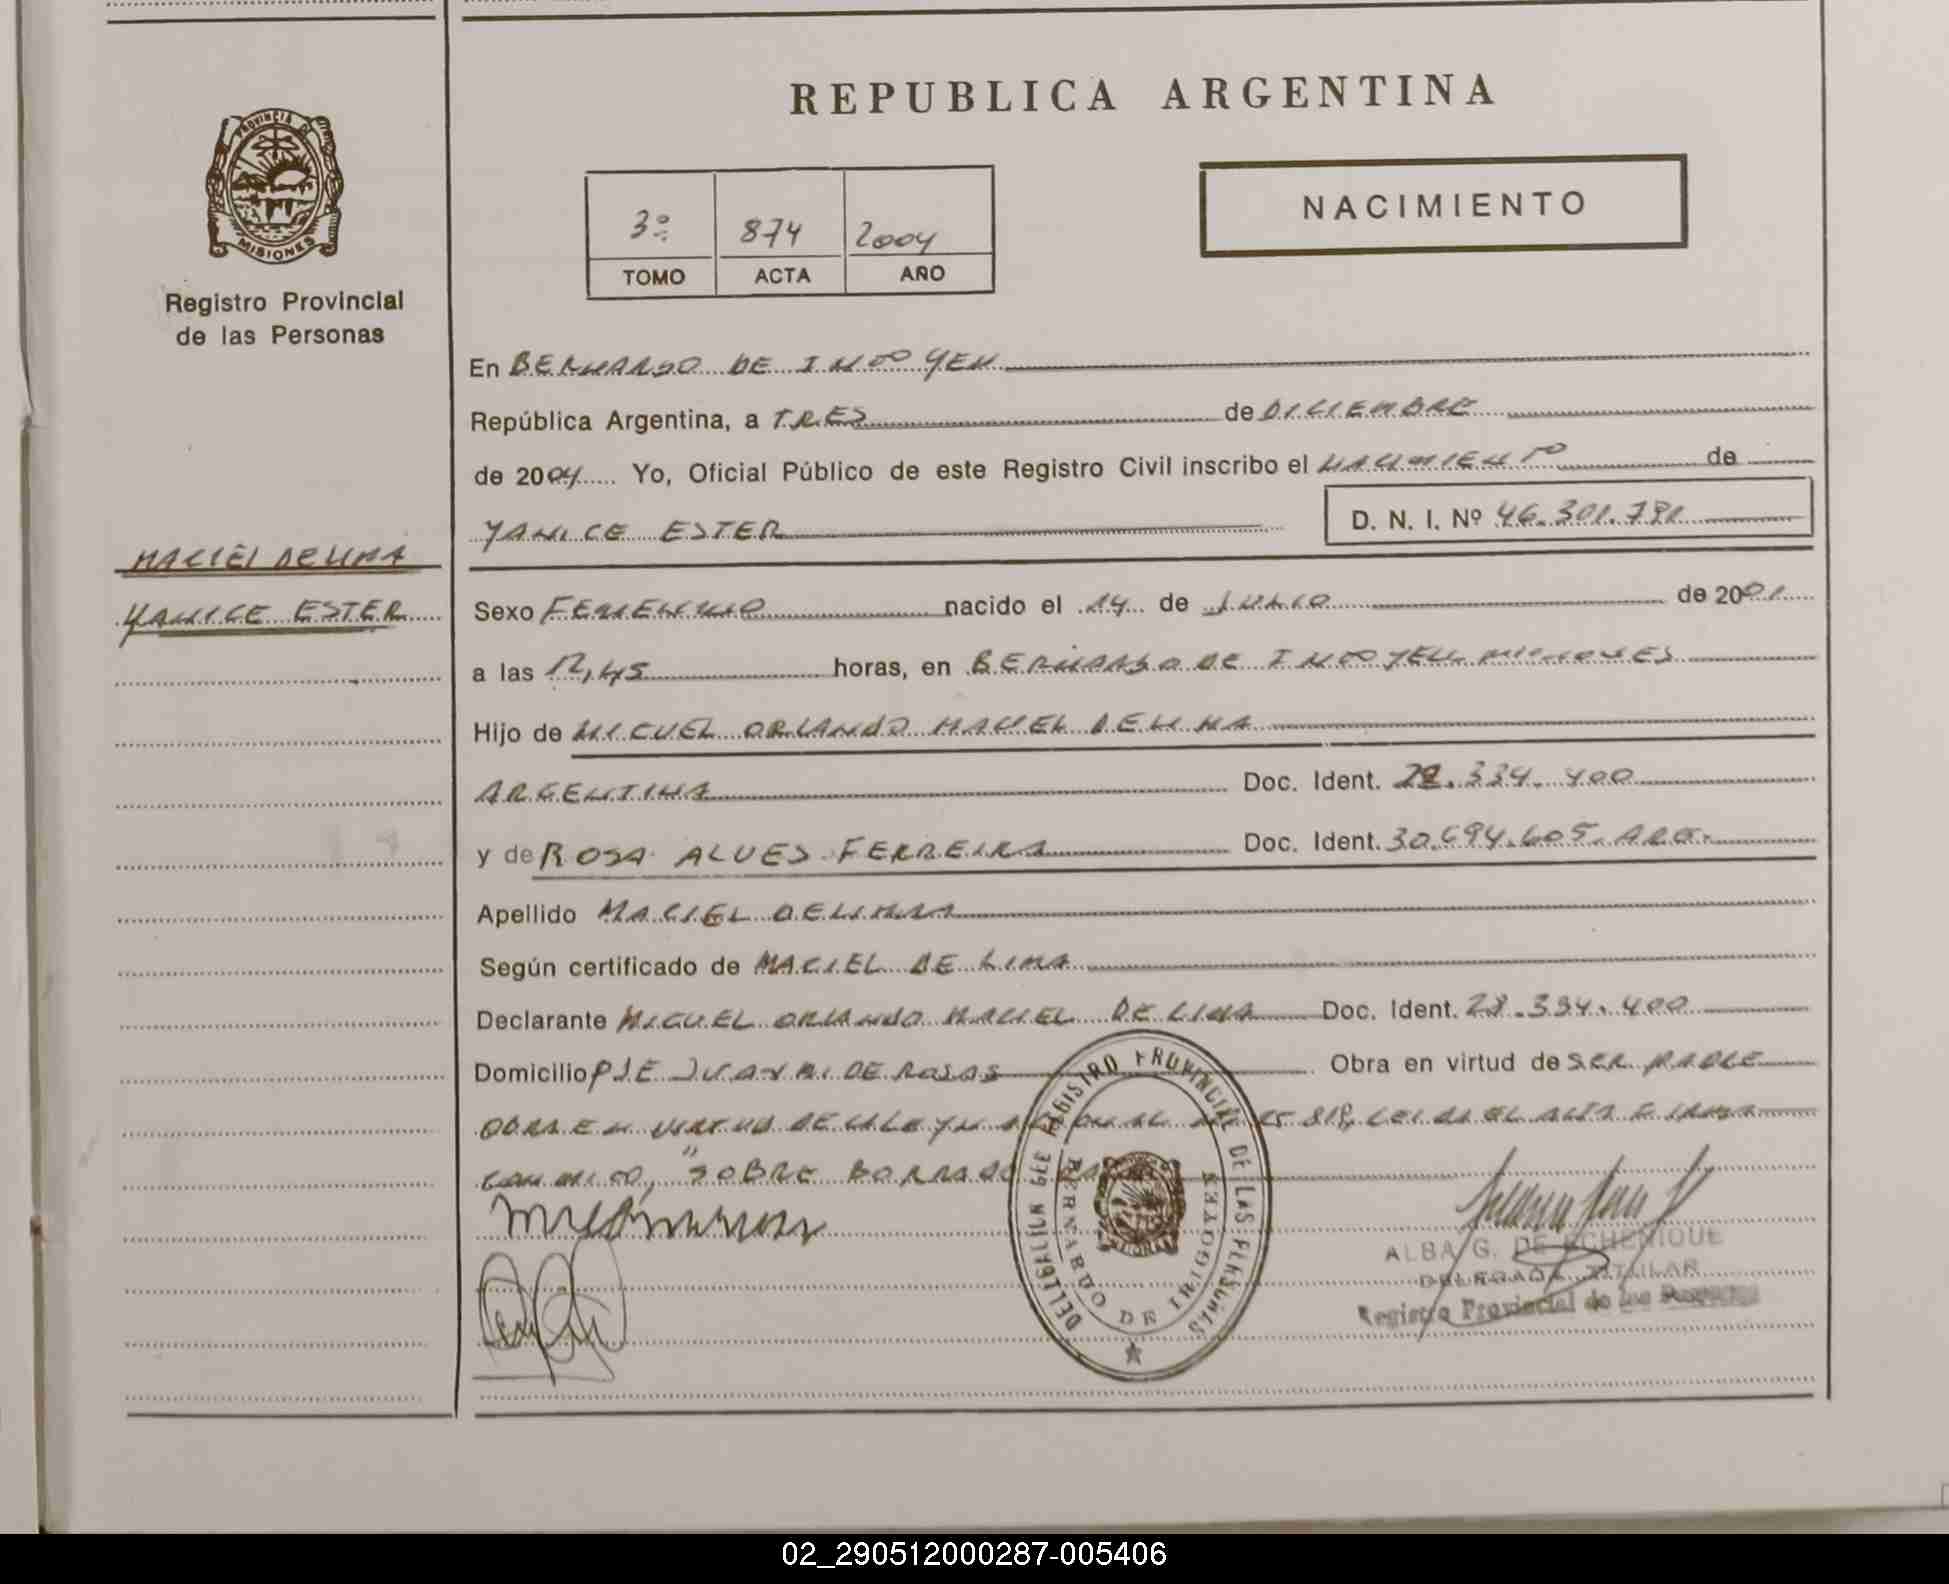 REPUBLICA ARGENTINA
PROVINCIA DE
MISIONES
Registro Provincial
de las Personas
3º 874 2004
TOMO ACTA AÑO
NACIMIENTO
En BERNARDO DE IRIGOYEN
República Argentina, a TRES de DICIEMBRE
de 2004 Yo, Oficial Público de este Registro Civil inscribo el NACIMIENTO de
YANICE ESTER D. N. I. Nº 46.301.791
MACIEL DELIMA
YANICE ESTER
Sexo FEMENINO nacido el 14 de JULIO de 2001
a las 12,45 horas, en BERNARDO DE IRIGOYEN MISIONES
Hijo de MIGUEL ORLANDO MACIEL DELIMA
ARGENTINA Doc. Ident. 28.334.400
y de ROSA ALVES FERREIRA Doc. Ident. 30.694.605. ARG.
Apellido MACIEL DELIMA
Según certificado de MACIEL DE LIMA
Declarante MIGUEL ORLANDO MACIEL DE LIMA Doc. Ident. 28.334.400
Domicilio PJE JUAN M. DE ROSAS Obra en virtud de SER PADRE
OBRA EN VIRTUD DE LA LEY NACIONAL Nº 25.819, LEIDA EL ACTA FIRMA
CONMIGO, "SOBRE BORRADO
REGISTRO PROVINCIAL DE LAS PERSONAS
BERNARDO DE IRIGOYEN
ALBA G. DE ECHENIQUE
DELEGADA TITULAR
Registro Provincial de las Personas
02_290512000287-005406